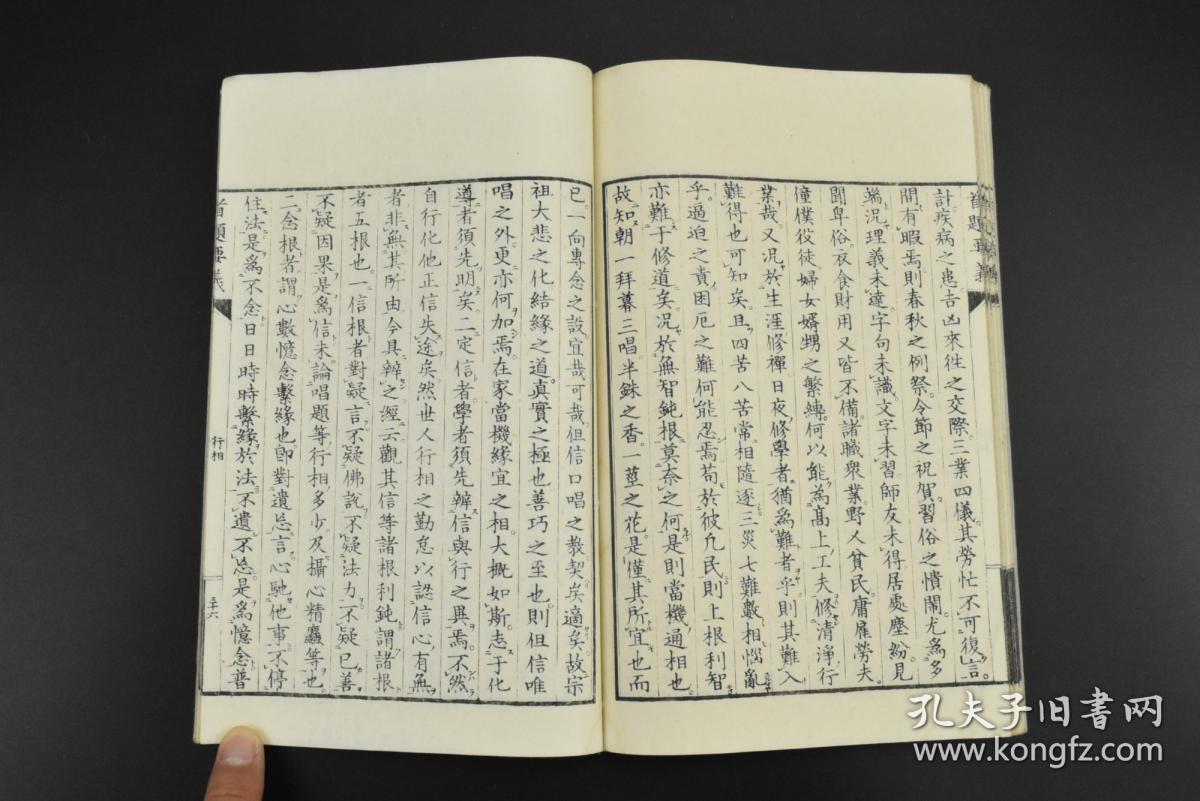 計疾病之患吉凶來往之交際三業四儀其勞忙不可復言
間有暇焉則春秋之例祭令節之祝賀習俗之憒鬧尤爲多
端況理義未達字句未識文字未習師友未得居處塵紛見
聞卑俗衣食財用又皆不備諸職衆業野人貧民庸雇勞夫
僮僕役徒婦女婿甥之繁縛何以能爲高上工夫修清淨行
業哉又況於生涯修禪日夜修學者猶爲難者乎則其難入
難得也可知矣且四苦八苦常相隨逐三災七難數相惱亂
乎逼迫之責困厄之難何能忍焉苟於彼凢民則上根利智
亦難于修道矣況於無智鈍根莫奈之何是則當機通相也
故知朝一拜暮三唱半銖之香一莖之花是僅其所宜也而
已一向專念之設宜哉可哉但信口唱之教契矣適矣故宗
祖大悲之化結緣之道眞實之極也善巧之至也則但信唯
唱之外更亦何加焉在家當機緣宜之相大概如斯志于化
導者須先明矣二定信者學者須先辨信與行之異焉不然
自行化他正信失途矣然世人行相之勤怠以認信心有無
者非無其所由今具辨之經云觀其信等諸根利鈍謂諸根
者五根也一信根者對疑言不疑佛說不疑法力不疑已善
不疑因果是爲信未論唱題等行相多少及攝心精麤等也
二念根者謂心數憶念繫緣也卽對遺忘言心馳他事不停
住法是爲不念日日時時繫緣於法不遺不忘是爲憶念普
首題要義
行相
三十六
首題要義
孔夫子旧書网
www.kongfz.com